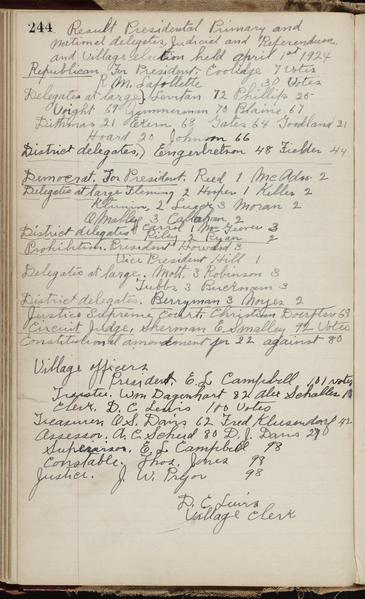 244
Result Presidental Primary and
national delegates, Judicial and Referendum
and Village election held april 1st 1924
Republican For President. Coolidge 7 votes
R. M. Lafollette 30 Votes
Delegates at large 72 Phillip 20
Voight 69 Zimmerman 70 Blaine 67
Dithmar 21 Ekern 69 Gates 64 Goodland 21
Hoard 20 Johnson 66
District delegates, Engerbretson 48 Fielder 44
Democrat. For President. Reed 1 McAdoo 2
Delegates at large Fleming 2 Hooper 1 Keller 2
2 3 Moran 2
O'Malley 3 Callahan 2
District delegates Carrol 1 McGeever 3
Riley 2 Ryan 2
Prohibition. President Howard 3
Vice President Hill 1
Delegates at large. Mott 3 Robinson 3
Tubbs 3 Buckmann 3
District delegates. Berryman 3 Noyes 2
Justice Supreme Court. Christian Doerfler 69
Circuit Judge. Sherman E. Smalley 72 Votes
Constitutional amendment for 22 against 80
Village officers
President. E. L. Campbell 101 votes
Trustee. Wm Dagenhart 82 Alec
Clerk. D. C. Lewis 100 Votes
Treasurer O. S. Davis 62 Fred 42
Assessor. A. C. Scheid 80 D. J. Davis
Supervisor. E. L. Campbell 98
Constable. Thos. Jones 98
Justice. J. W. Pryor 98
D. C. Lewis
Village Clerk